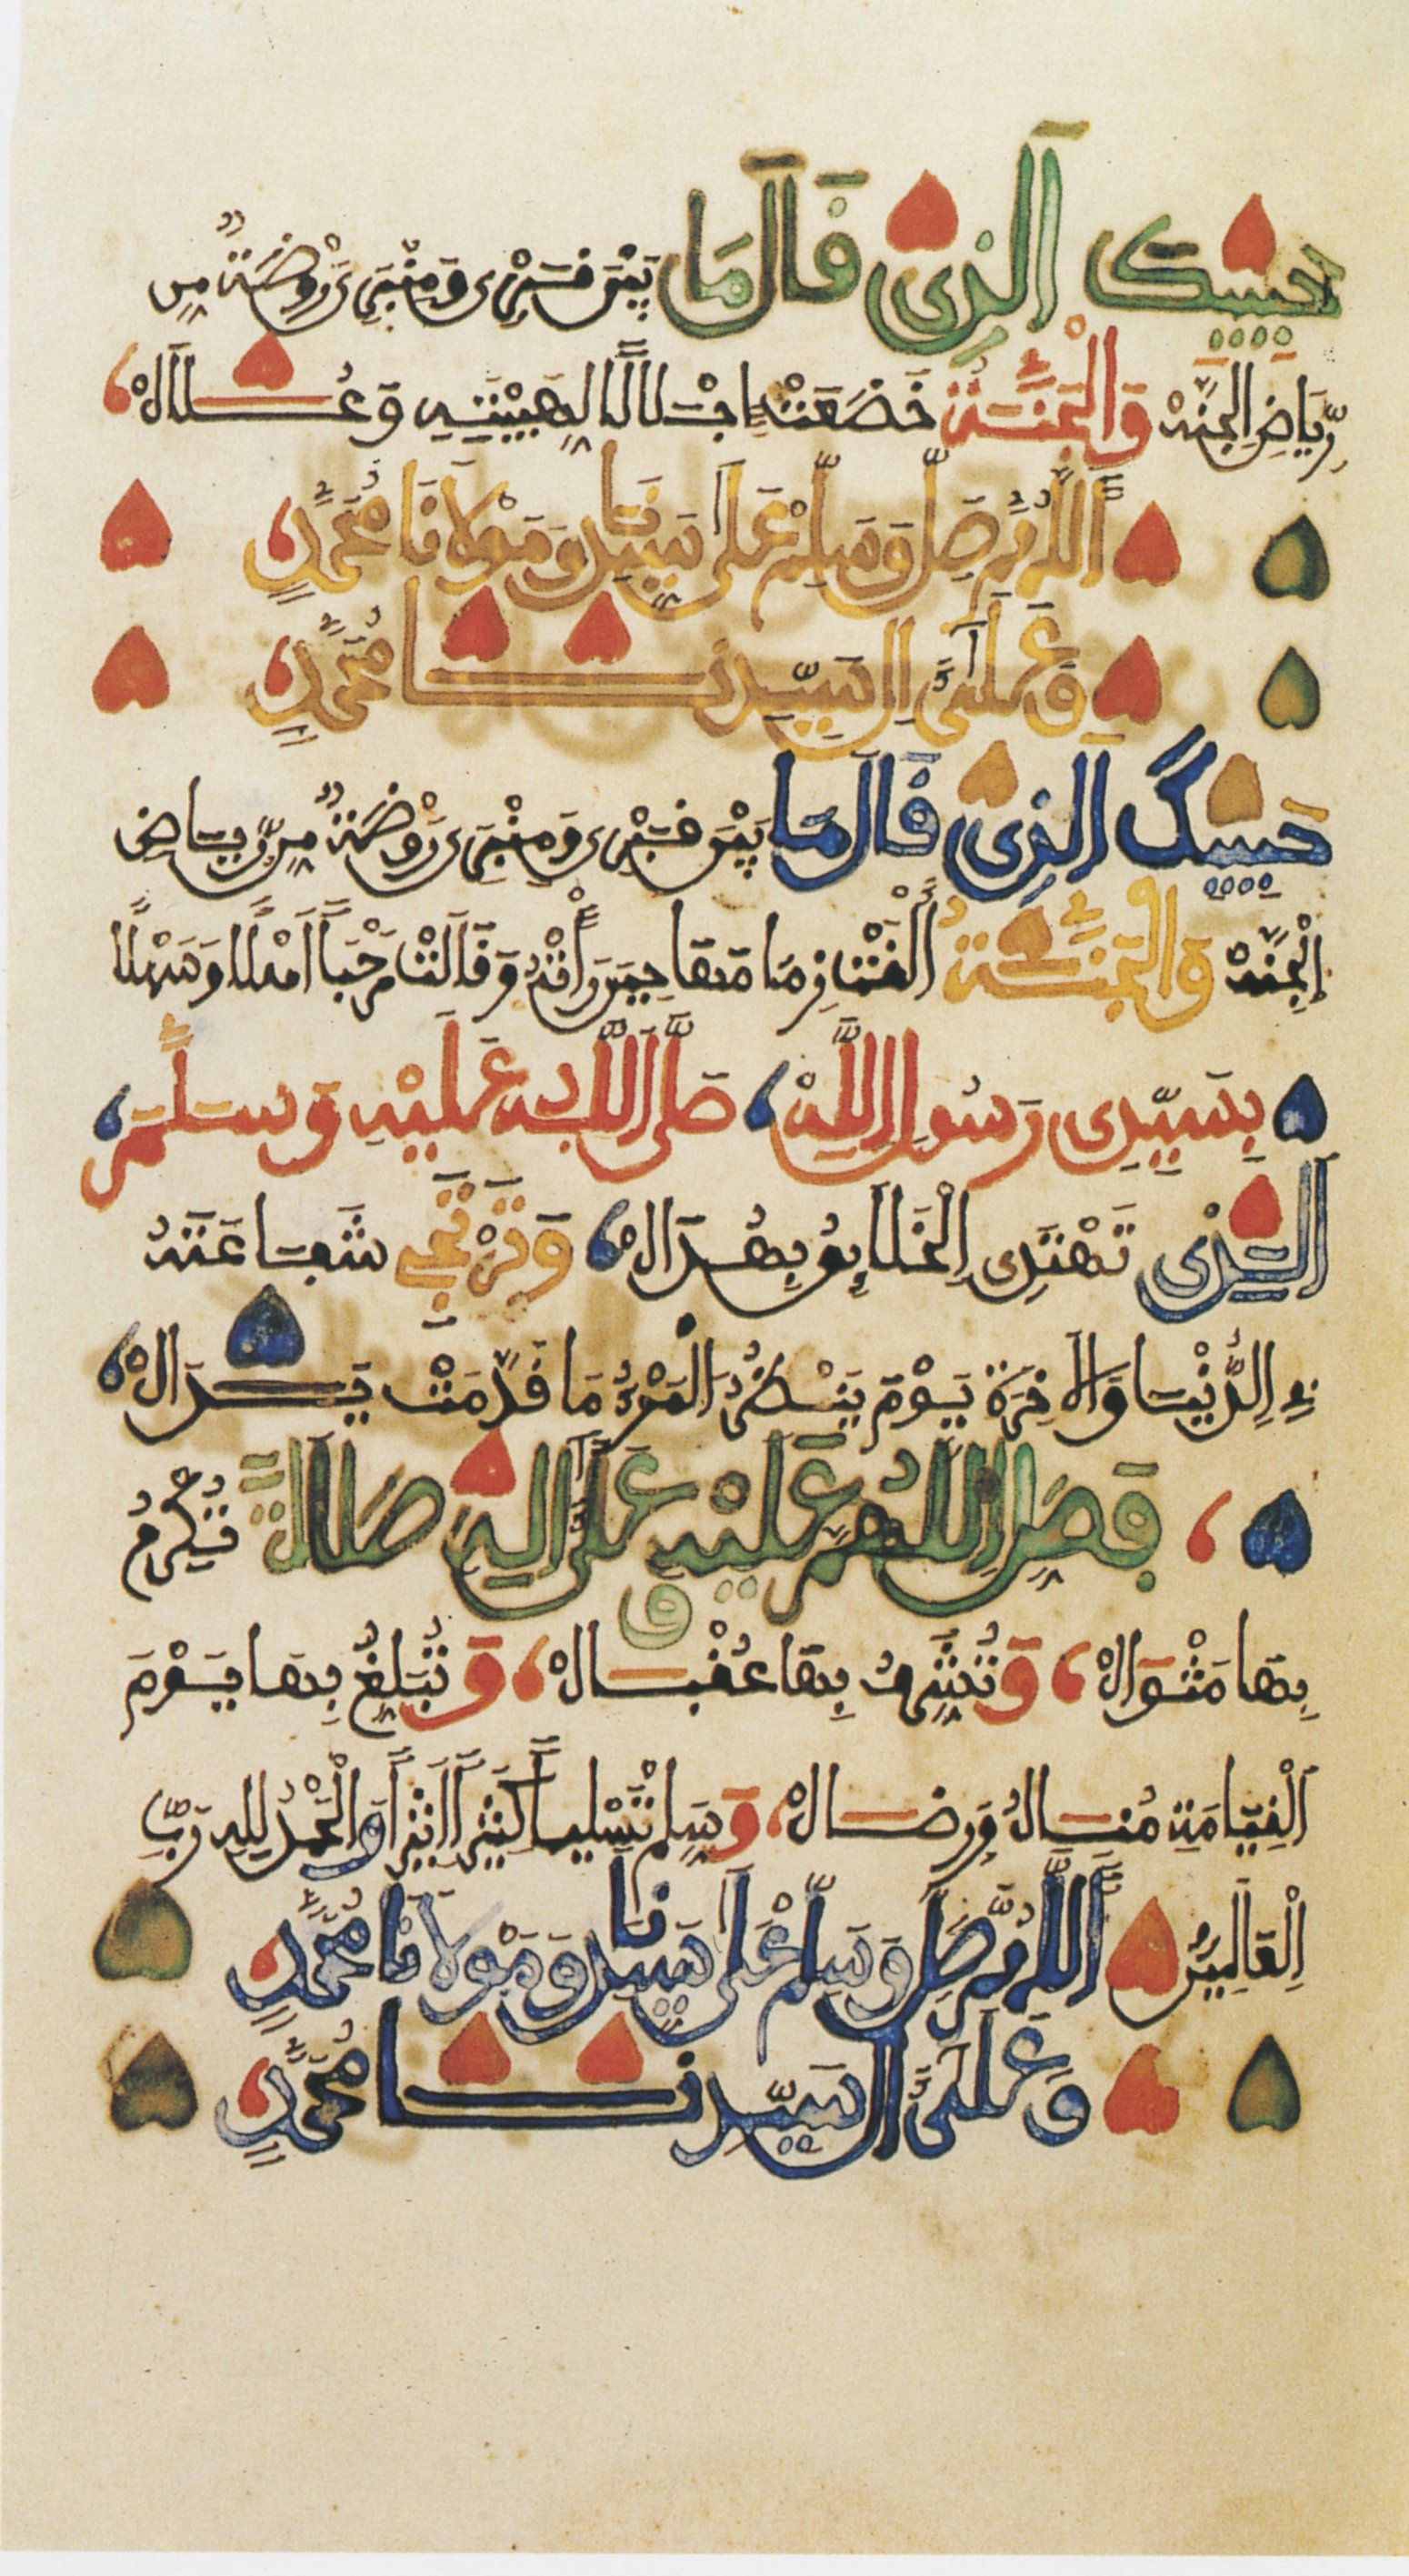 حبيبك الذي قال ما بين قبري ومنبري روضة من
رياض الجنه والجنة خضعت اجلالا لهيبته وعلاه
اللهم صل وسلم على سيدنا ومولانا محمد
وعلى ال سيدنا محمد
حبيبك الذي قال ما بين قبري ومنبري روضة من رياض
الجنه والجنة ألقت زمامها حين رأته وقالت مرحبا اهلا وسهلا
بسيدي رسول الله صلى الله عليه وسلم
الذي تهتدي الخلايق بهداه وترتجي شفاعته
في الدنيا والاخرة يوم ينظر المرء ما قدمت يداه
فصل اللهم عليه وعلى اله صلاة تكرم
بها مثواه وتشرف بها عقباه وتبلغ بها يوم
القيامة مناه ورضاه وسلم تسليما كثيرا اثيرا والحمد لله رب
العالمين اللهم صل وسلم على سيدنا ومولانا محمد
وعلى ال سيدنا محمد